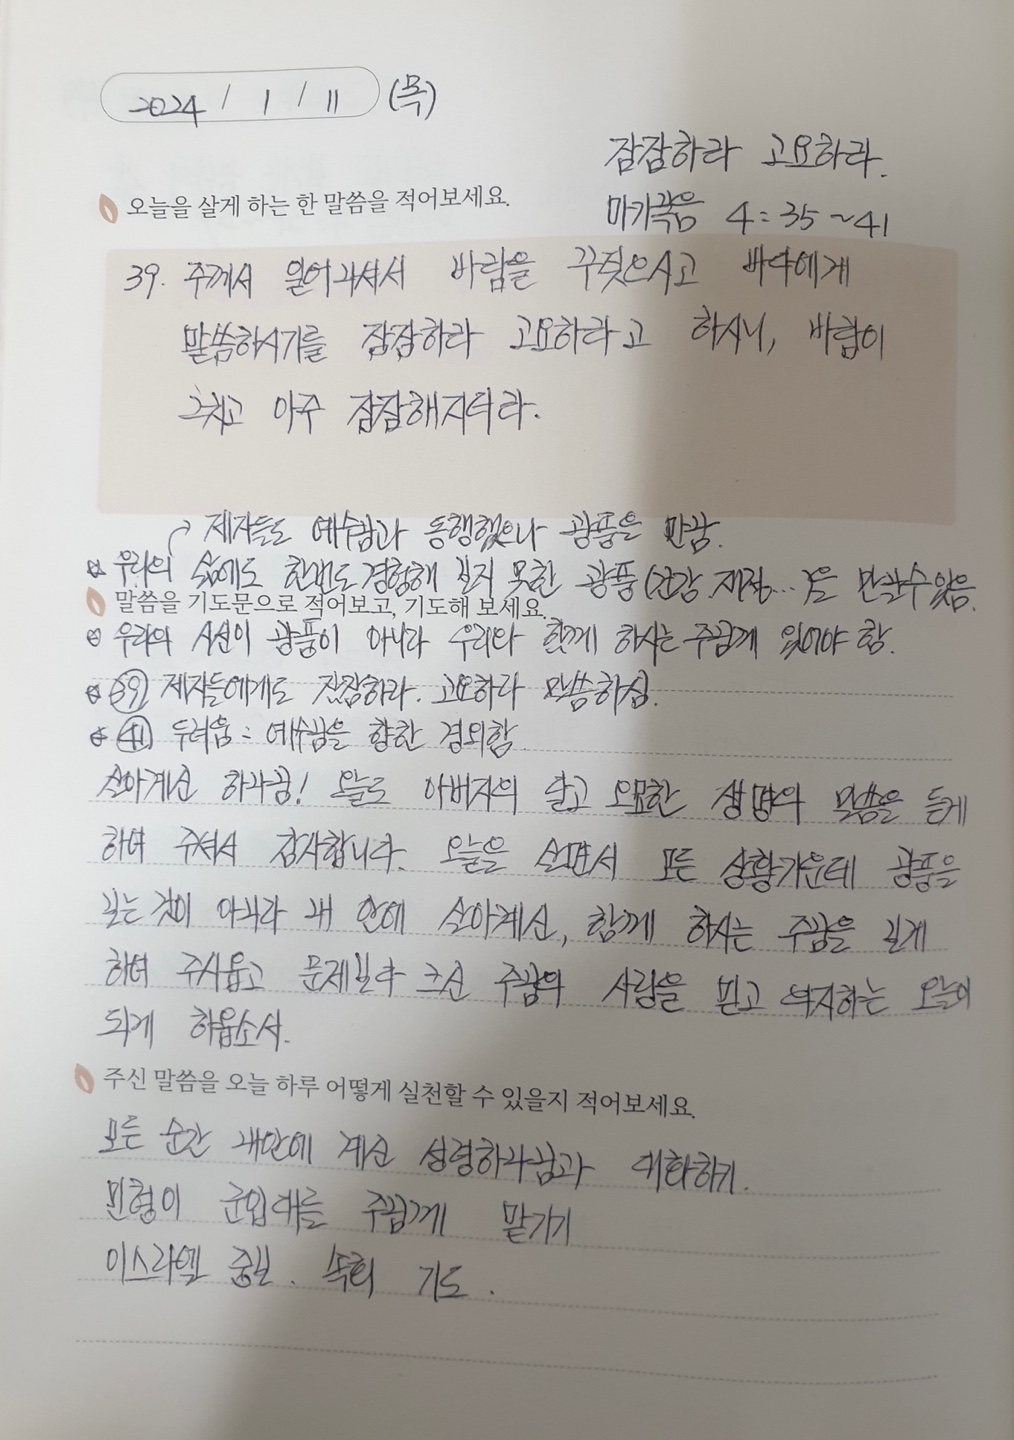 2024 / 1 / 11 (목)
잠잠하라 고요하라.
오늘을 살게 하는 한 말씀을 적어보세요.
마가복음 4:35~41
39. 주께서 일어나셔서 바람을 꾸짖으시고 바다에게
말씀하시기를 잠잠하라 고요하라고 하시니, 바람이
그치고 아주 잠잠해지더라.
→ 제자들도 예수님과 동행했으나 광풍을 만남.
우리의 삶에도 한번도 경험해 보지 못한 광풍(건강.재정...)을 만날수있음.
말씀을 기도문으로 적어보고, 기도해 보세요.
우리의 시선이 광풍이 아니라 우리와 함께 하시는 주님께 있어야 함.
39 제자들에게도 잠잠하라. 고요하라 말씀하심.
41 두려움 : 예수님을 향한 경외함.
살아계신 하나님! 오늘도 아버지의 달고 오묘한 생명의 말씀을 듣게
하여 주셔서 감사합니다. 오늘을 살면서 모든 상황가운데 광풍을
보는 것이 아니라 내 안에 살아계신, 함께 하시는 주님을 보게
하여 주시옵고 문제보다 크신 주님의 사랑을 믿고 의지하는 오늘이
되게 하옵소서.
주신 말씀을 오늘 하루 어떻게 실천할 수 있을지 적어보세요.
모든 순간 내안에 계신 성령하나님과 대화하기.
민형이 군입대를 주님께 맡기기
이스라엘 중보. 속회 기도.